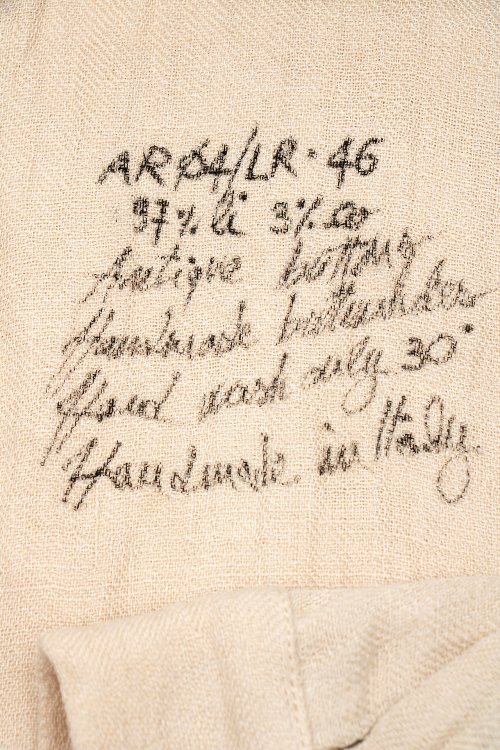 ARØ4/LR·46
97% li 3% co
Antique buttons
Handmade buttonholes
Hand wash only 30°
Handmade in Italy